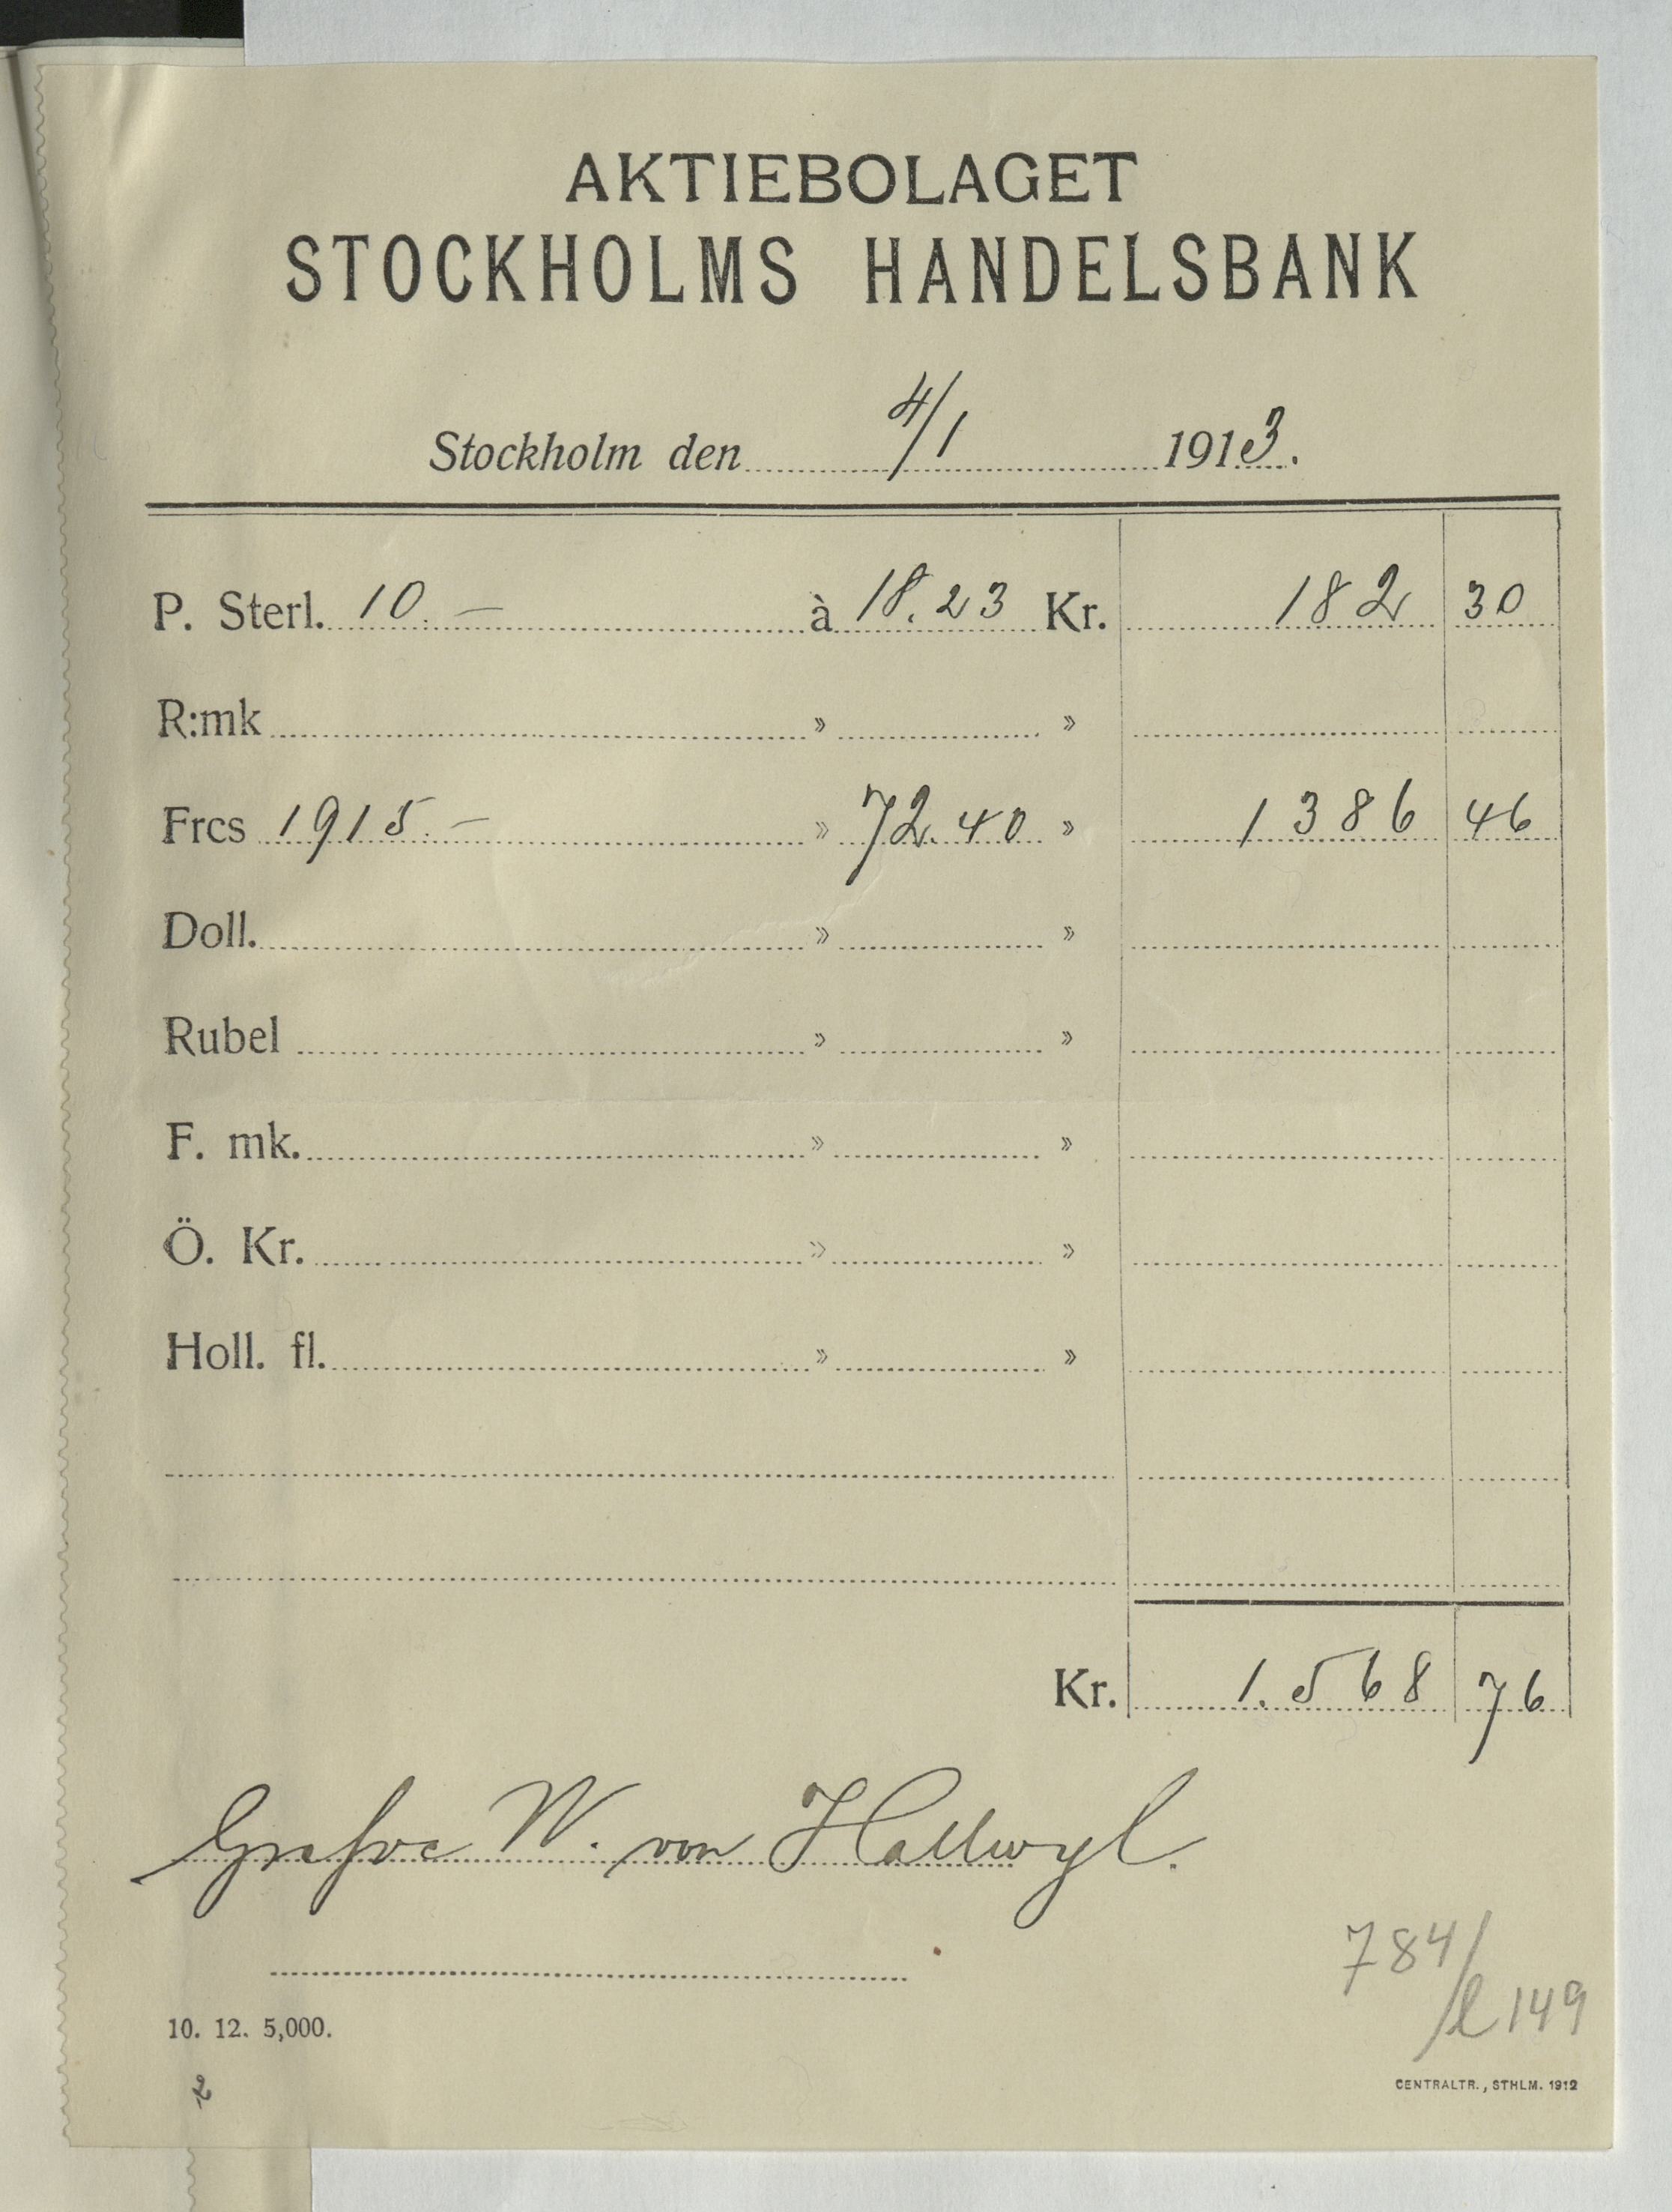 AKTIEBOLAGET
STOCKHOLMS HANDELSBANK
Stockholm den 4/1 1913.
P. Sterl. 10.— à 18.23 Kr. 182 30
R:mk » »
Frcs 1915.— » 72.40 » 1386 46
Doll. » »
Rubel » »
F. mk. » »
Ö. Kr. » »
Holl. fl. » »
Kr. 1.568 76
Grefve W. von Hallwyl.
784/
/l 149
10. 12. 5,000.
2
CENTRALTR., STHLM. 1912